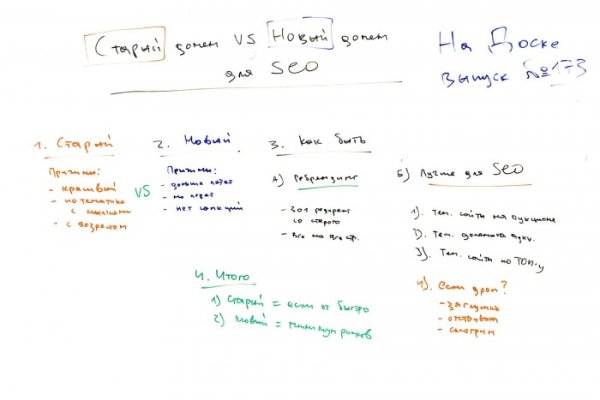 Старый домен VS Новый домен
для SEO
На Доске
выпуск №173
1. Старый
Причины:
- красивый
- по тематике
с ссылками
- с возрастом
VS
2. Новый
Причины:
- дольше
- не
- нет санкций
3. Как быть
А) Ребрендинг
- 301 редирект
со старого
- Все на все стр.
Б) Лучше для SEO
1). Тем. сайты на аукционе
2). Тем. домена аукц.
3). Тем. сайты по ТОП-у
4). если дроп?
- заглушка
-
- смотрим
4. Итого
1) Старый = если оч быстро
2) Новый = минимум рисков